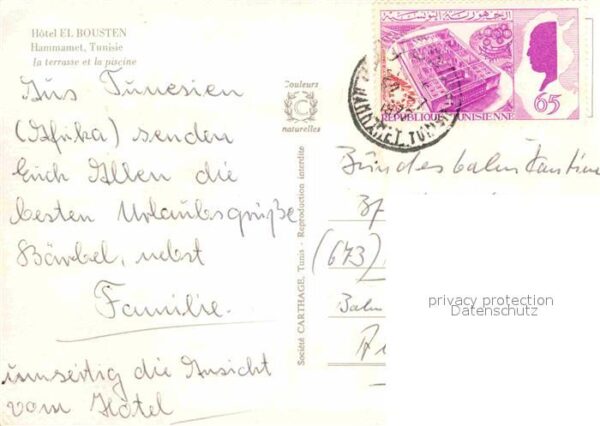 Hôtel EL BOUSTEN
Hammamet, Tunisie
la terrasse et la piscine
Aus Tunesien
(Afrika) senden
Euch Allen die
besten Urlaubsgrüße
Bärbel, nebst
Familie.
umseitig die Ansicht
vom Hotel
Couleurs
naturelles
Société CARTHAGE, Tunis - Reproduction interdite
الجمهورية التونسية
65
REPUBLIQUE TUNISIENNE
HAMMAMET
Bundesbahnkantine
(673)
Bahn
privacy protection
Datenschutz